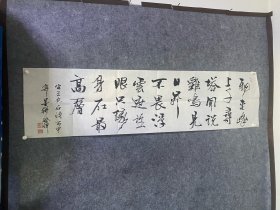 飛来峰
上千尋
塔聞説
雞鳴見
日昇
不畏浮
雲遮望
眼只緣
身在最
高層